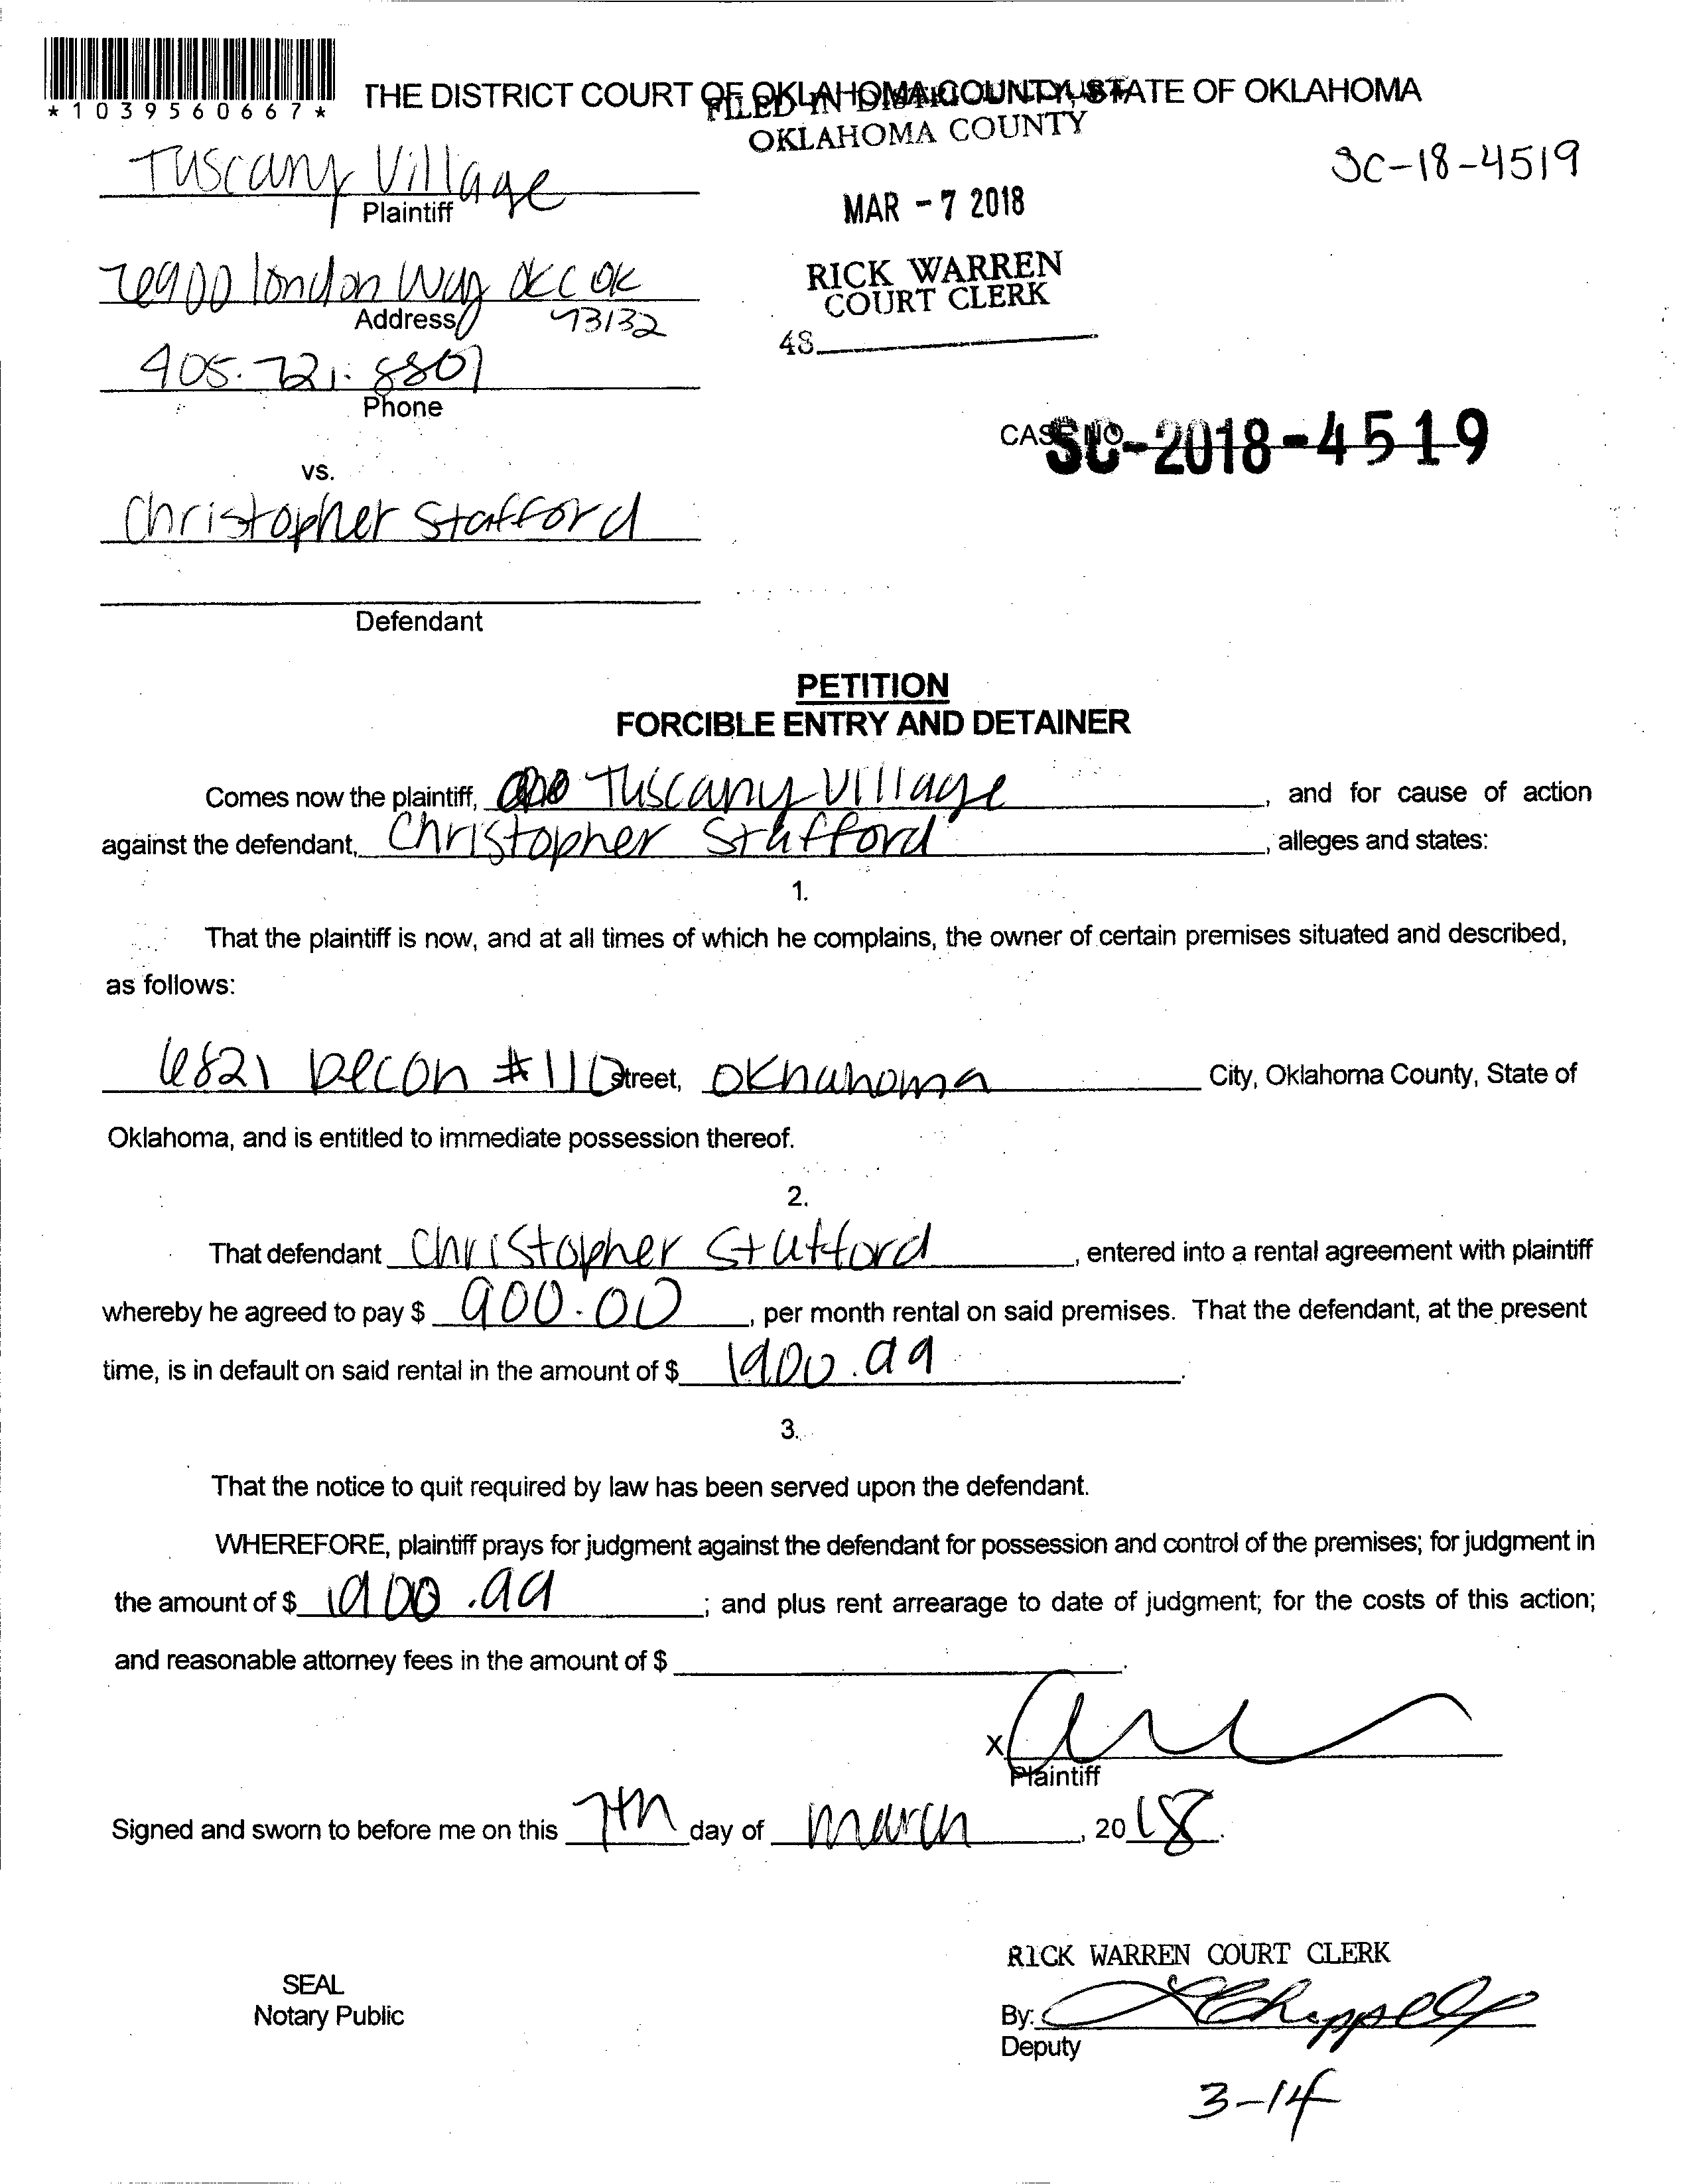 *1039560667*
THE DISTRICT COURT OF OKLAHOMA COUNTY, STATE OF OKLAHOMA
FILED IN DISTRICT COURT
OKLAHOMA COUNTY
Tuscany Village
SC-18-4519
Plaintiff
MAR - 7 2018
London Way OKC OK
RICK WARREN
COURT CLERK
Address
73132
48
405.721.8807
Phone
CASE NO
SC-2018-4519
vs.
Christopher Stafford
Defendant
PETITION
FORCIBLE ENTRY AND DETAINER
Comes now the plaintiff, Tuscany Village, and for cause of action
against the defendant, Christopher Stafford, alleges and states:
1.
That the plaintiff is now, and at all times of which he complains, the owner of certain premises situated and described,
as follows:
6821 Street, City, Oklahoma County, State of
Oklahoma, and is entitled to immediate possession thereof.
2.
That defendant Christopher Stafford, entered into a rental agreement with plaintiff
whereby he agreed to pay $ 900.00, per month rental on said premises. That the defendant, at the present
time, is in default on said rental in the amount of $ 1900.99.
3.
That the notice to quit required by law has been served upon the defendant.
WHEREFORE, plaintiff prays for judgment against the defendant for possession and control of the premises; for judgment in
the amount of $ 1900.99; and plus rent arrearage to date of judgment; for the costs of this action;
and reasonable attorney fees in the amount of $
X
Plaintiff
Signed and sworn to before me on this 7th day of march, 2018.
RICK WARREN COURT CLERK
SEAL
Notary Public
By:
Deputy
3-14